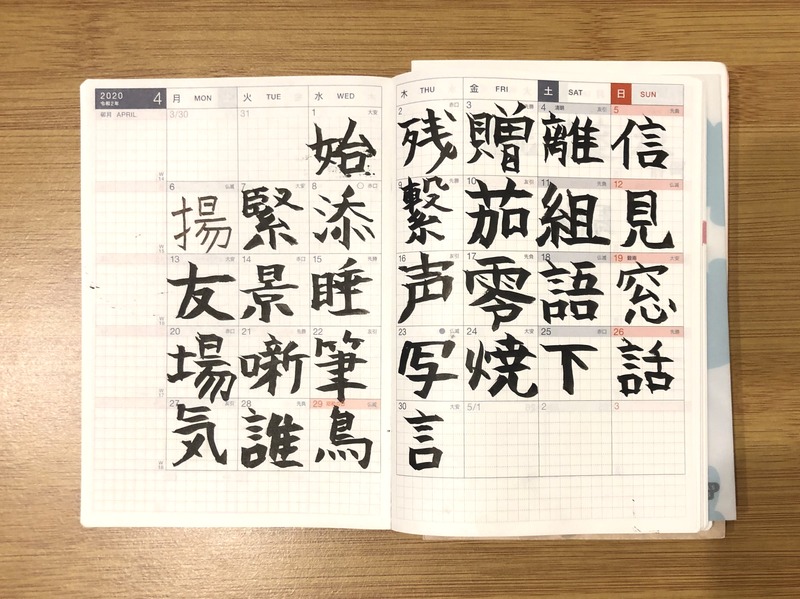 2020 4 月 MON 火 TUE 水 WED 木 THU 金 FRI 土 SAT 日 SUN
令和2年
卯月 APRIL 3/30 31 1 大安 2 赤口 3 先勝 4 清明 友引 5 先負
始 残 贈 離 信
6 仏滅 7 大安 8 赤口 9 先勝 10 友引 11 先負 12 仏滅
揚 緊 添 繋 茄 組 見
13 大安 14 赤口 15 先勝 16 友引 17 先負 18 仏滅 19 大安
友 景 睡 声 零 語 窓
20 赤口 21 先勝 22 友引 23 仏滅 24 大安 25 赤口 26 先勝
場 噺 筆 写 焼 下 話
27 友引 28 先負 29 仏滅 30 大安 5/1 2 3
気 誰 鳥 言